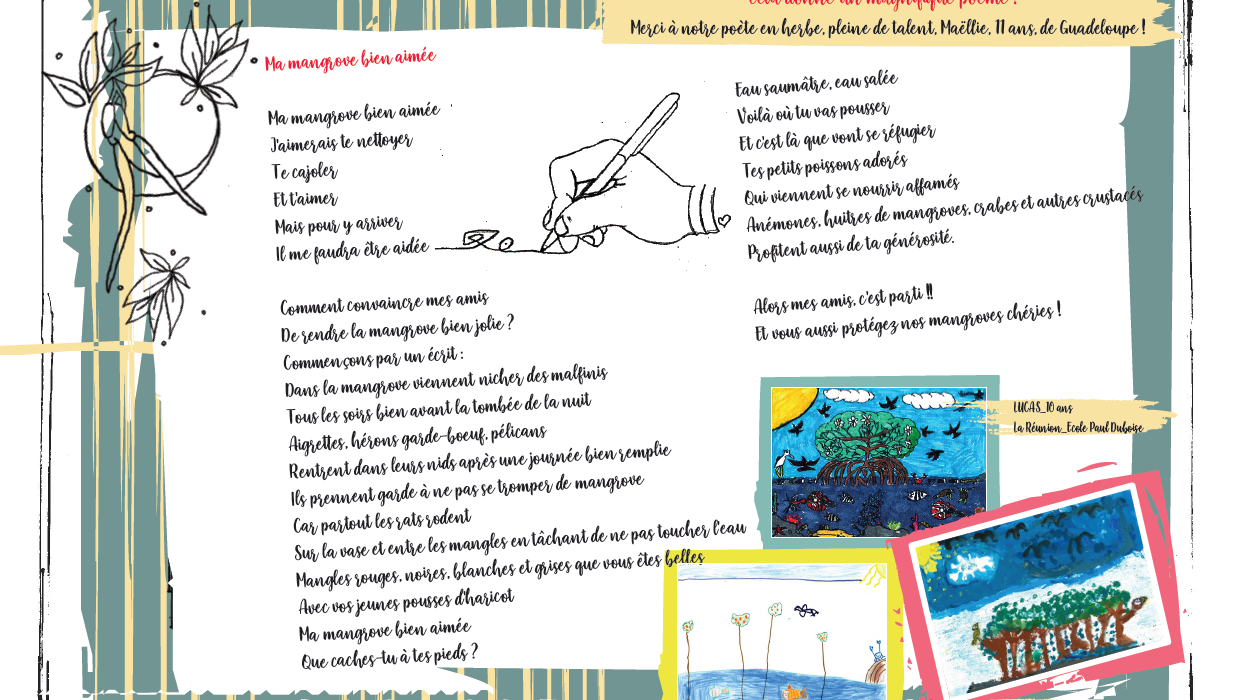 cela donne un magnifique poème !
Merci à notre poète en herbe, pleine de talent, Maëllie, 11 ans, de Guadeloupe !
Ma mangrove bien aimée
Ma mangrove bien aimée
J'aimerais te nettoyer
Te cajoler
Et t'aimer
Mais pour y arriver
Il me faudra être aidée
Comment convaincre mes amis
De rendre la mangrove bien jolie ?
Commençons par un écrit :
Dans la mangrove viennent nicher des malfinis
Tous les soirs bien avant la tombée de la nuit
Aigrettes, hérons garde-boeuf, pélicans
Rentrent dans leurs nids après une journée bien remplie
Ils prennent garde à ne pas se tromper de mangrove
Car partout les rats rodent
Sur la vase et entre les mangles en tâchant de ne pas toucher l'eau
Mangles rouges, noires, blanches et grises que vous êtes belles
Avec vos jeunes pousses d'haricot
Ma mangrove bien aimée
Que caches-tu à tes pieds ?
Eau saumâtre, eau salée
Voilà où tu vas pousser
Et c'est là que vont se réfugier
Tes petits poissons adorés
Qui viennent se nourrir affamés
Anémones, huitres de mangroves, crabes et autres crustacés
Profitent aussi de ta générosité.
Alors mes amis, c'est parti !!
Et vous aussi protégez nos mangroves chéries !
LUCAS_10 ans
La Réunion_Ecole Paul Duboise